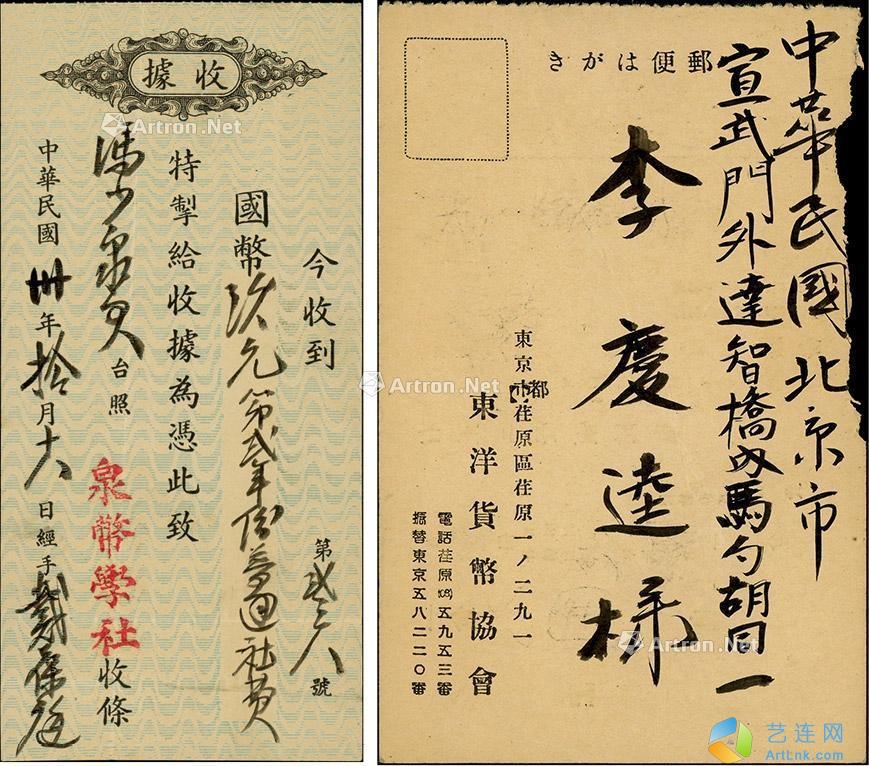 收據
今收到
第弍三八號
國幣玖元第弍年份普通社費
特掣給收據為憑此致
馮少泉君台照
泉幣學社收條
中華民國卅年拾月十六日經手戴葆庭
郵便はがき
中華民國北京市
宣武門外達智橋內馬勺胡同一
李慶逵様
東京市都荏原區荏原一ノ二九一
東洋貨幣協會
電話荏原(08)五九五三番
振替東京五八二二〇番
Artron.Net
Artron.Net
Artron.Net
Artron.Net
艺连网
ArtLnk.com